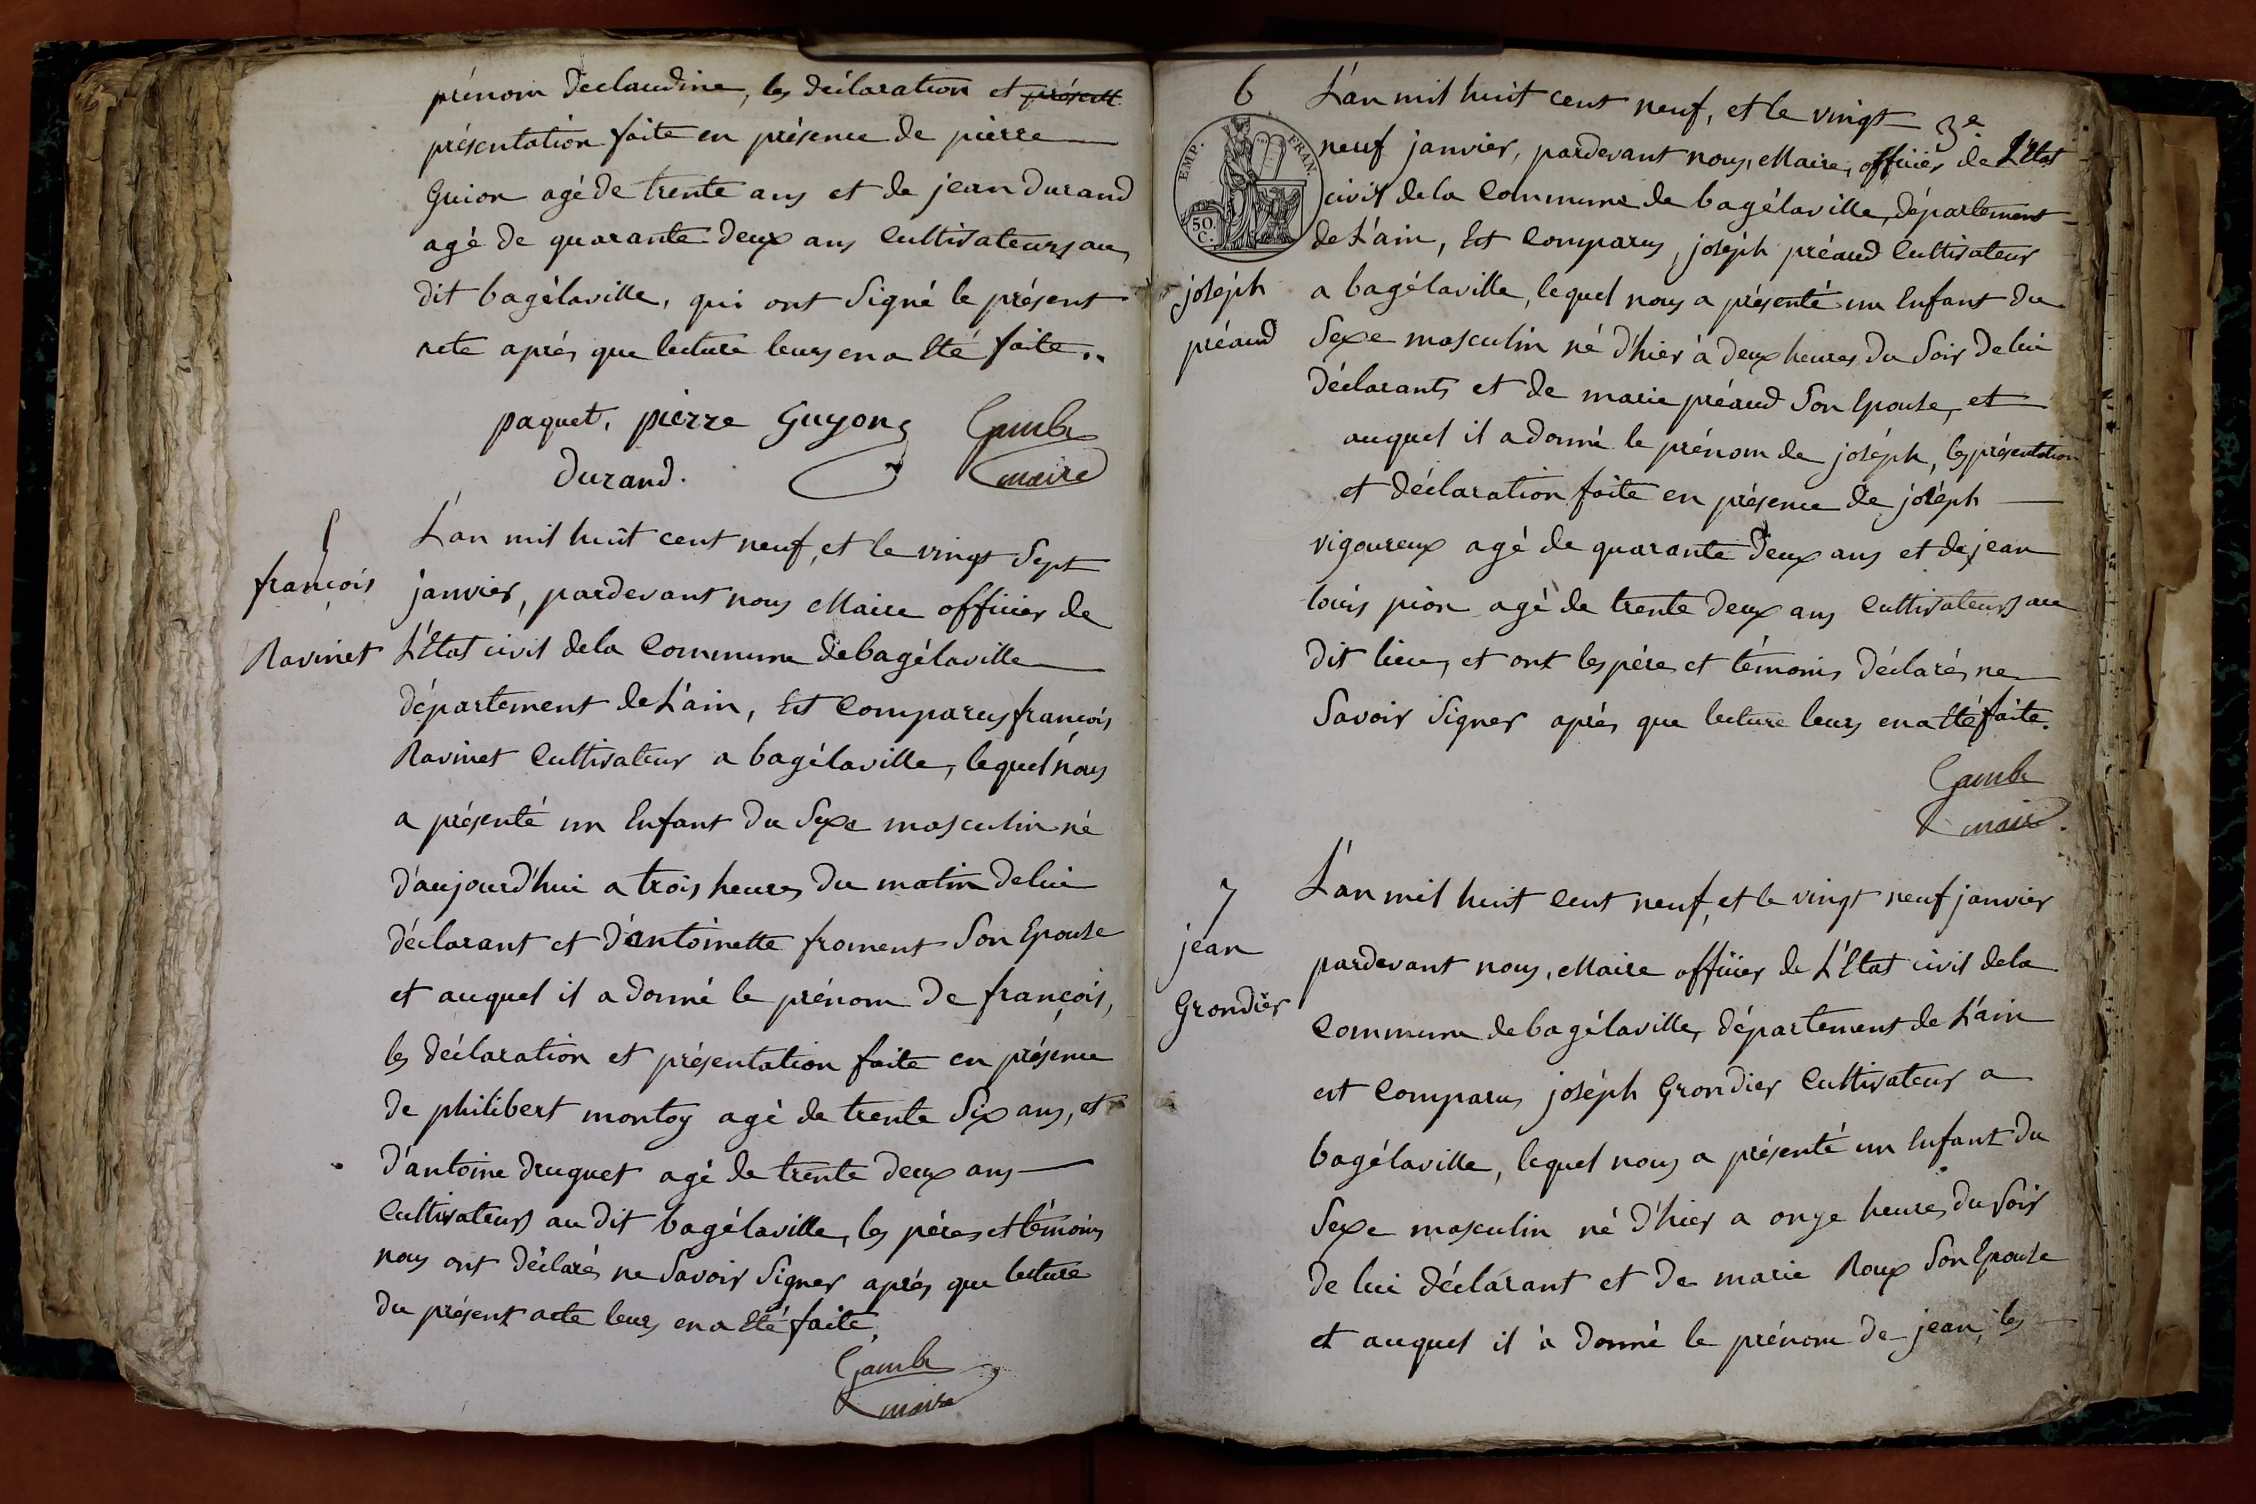 prénom declaudine, les déclaration et présent
présentation faite en présence de pierre
Guion agé de trente ans et de jean durand
agé de quarante deux ans Cultivateurs au
dit bagélaville, qui ont Signé le présent
acte aprés que lecture leurs en a Eté faite..
paquet, pierre Guyon
Gambe
durand.
maire
5
L'an mil huit cent neuf, et le vingt Sept
françois
janvier, pardevant nous Maire officier de
Ravinet
L'Etat civil dela Commune de bagélaville
département de L'ain, Est Comparus françois
Ravinet Cultivateur a bagélaville, lequel nous
a présenté un Enfant du Sexe masculin né
d'aujourd'hui a trois heures du matin de lui
déclarant et d'antoinette froment Son Epouse
et auquel il a donné le prénom de françois,
les déclaration et présentation faite en présence
de philibert montoy agé de trente Six ans, et
d'antoine druguet agé de trente deux ans
Cultivateurs au dit bagélaville, les péres et témoins
nous ont déclarés ne Savoir Signer aprés que lecture
du présent acte leurs en a Eté faite,
Gambe
maire
6
L'an mil huit cent neuf, et le vingt
3e
EMP. FRAN.
50.
C.
neuf janvier, pardevant nous, Maire, officier de L'Etat
civil dela Commune de bagélaville, département
de L'ain, Est Comparus, joséph préaud Cultivateur
joséph
a bagélaville, lequel nous a présenté un Enfant du
préaud
Sexe masculin né d'hier à deux heures du Soir de lui
déclarants et de marie préaud Son Epouse, et
auquel il a donné le prénom de joséph, les présentation
et déclaration faite en présence de joséph
vigoureux agé de quarante deux ans et de jean
louis pion agé de trente deux ans Cultivateurs au
dit lieu, et ont les pére et témoins déclarés ne
Savoir Signer aprés que lecture leurs en a Eté faite.
Gambe
maire
7
L'an mil huit Cent neuf, et le vingt neuf janvier
jean
pardevant nous, Maire officier de L'Etat civil dela
Grondier
Commune de bagélaville, département de L'ain
est Comparus joséph Grondier Cultivateur a
bagélaville, lequel nous a présenté un Enfant du
Sexe masculin né d'hier a onze heures du Soir
de lui déclarant et de marie Roux Son Epouse
et auquel il à donné le prénom de jean, les